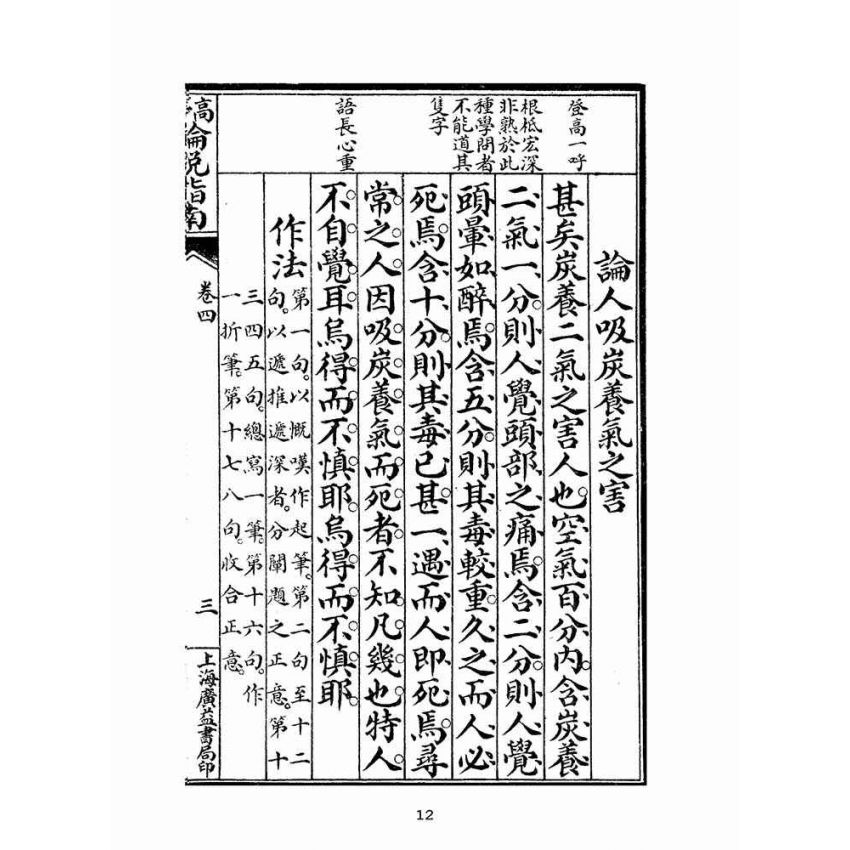 登高一呼
根柢宏深
非熟於此
種學問者
不能道其
隻字
語長心重
論人吸炭養氣之害
甚矣炭養二氣之害人也。空氣百分內。含炭養
二氣一分。則人覺頭部之痛焉。含二分。則人覺
頭暈如醉焉。含五分。則其毒較重。久之而人必
死焉。含十分。則其毒已甚。一遇而人即死焉。尋
常之人。因吸炭養氣而死者。不知凡幾也。特人
不自覺耳。烏得而不慎耶。烏得而不慎耶
作法
第一句。以慨嘆作起筆。第二句至十二
句。以遞推遞深者。分闡題之正意。第十
三四五句。總寫一筆。第十六句。作
一折筆。第十七八句。收合正意。
高
論說指南
卷四
三
上海廣益書局印
12